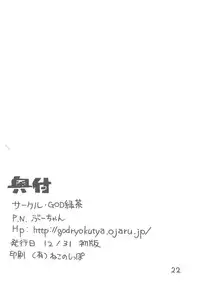 奥付
サークル・GOD緑茶
P.N. ぶーちゃん
Hp: http://godryokutya.ojaru.jp/
発行日 12/31 初版
印刷 (有)ねこのしっぽ
22